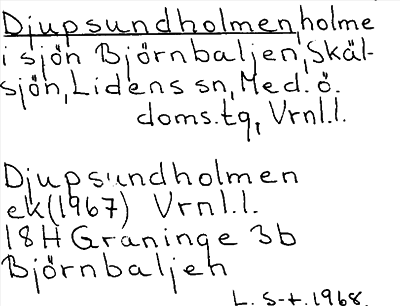 Djupsundholmen, holme
i sjön Björnbaljen, Skäl-
sjön, Lidens sn, Med. ö.
doms.tg, Vrnl.l.
Djupsundholmen
ek(1967) Vrnl.l.
18H Graninge 3b
Björnbaljen
L. S-t. 1968.